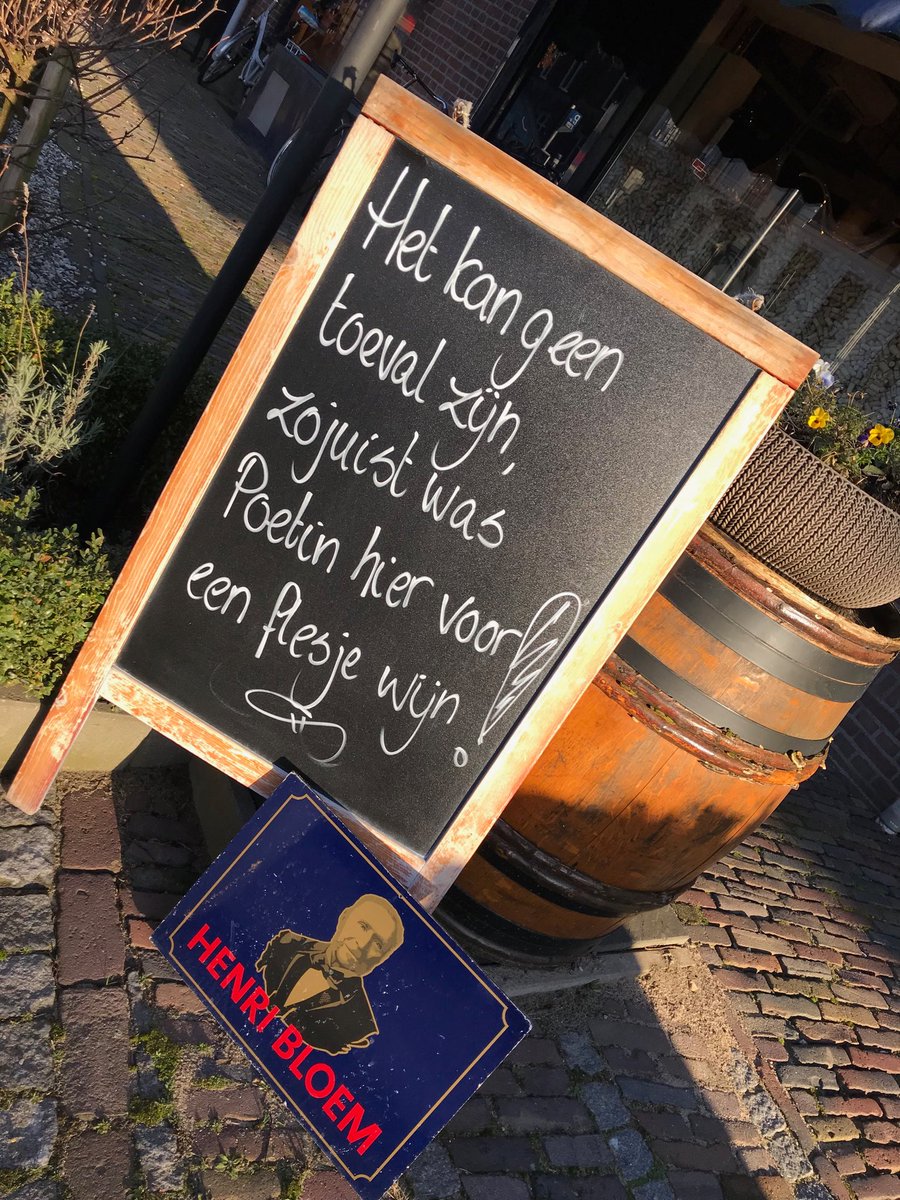 Het kan geen
toeval zijn,
zojuist was
Poetin hier voor
een flesje wijn!
HENRI BLOEM